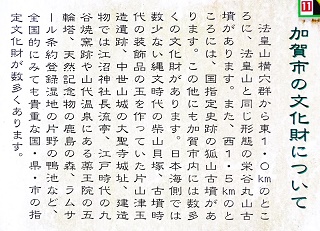 11
加賀市の文化財について
法皇山横穴群から東1.0kmのとこ
ろに、法皇山と同じ形態の栄谷丸山古
墳があります。また、西1.5kmのと
ころには、国指定史跡の狐山古墳があ
ります。この他にも加賀市内には数多
くの文化財があります。日本海側では
数少ない縄文時代の柴山貝塚、古墳時
代の装飾品の玉を作っていた片山津玉
造遺跡、中世山城の大聖寺城址、建造
物では江沼神社長流亭、江戸時代の九
谷焼窯跡や山代温泉にある薬王院の五
輪塔、天然記念物の鹿島の森、ラムサ
ール条約登録湿地の片野の鴨池など、
全国的にみても貴重な国・県・市の指
定文化財が数多くあります。